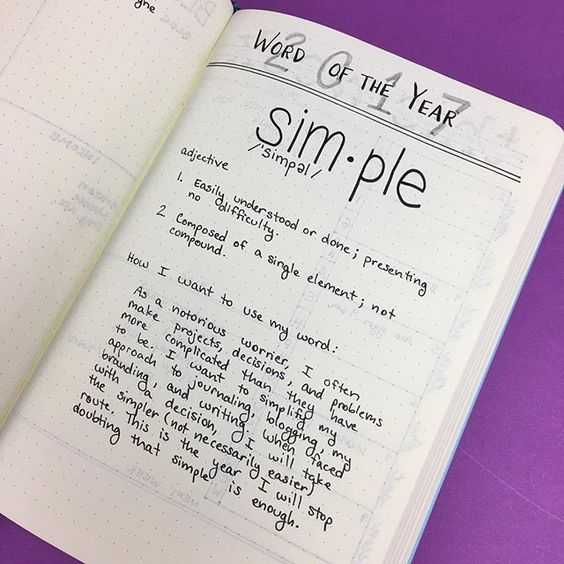 gne
2017
WORD OF THE YEAR
sim·ple
/'simpəl/
adjective
1. Easily understood or done; presenting
no difficulty.
2 Composed of a single element; not
compound.
How I want to use my word:
As a notorious worrier, I often
make projects, decisions, and problems
more complicated than they have
to be. I want to simplify my
approach to journaling, blogging, my
branding, and writing. When faced
with a decision, I will take
the simpler (not necessarily easier)
route. This is the year I will stop
doubting that simple is enough.